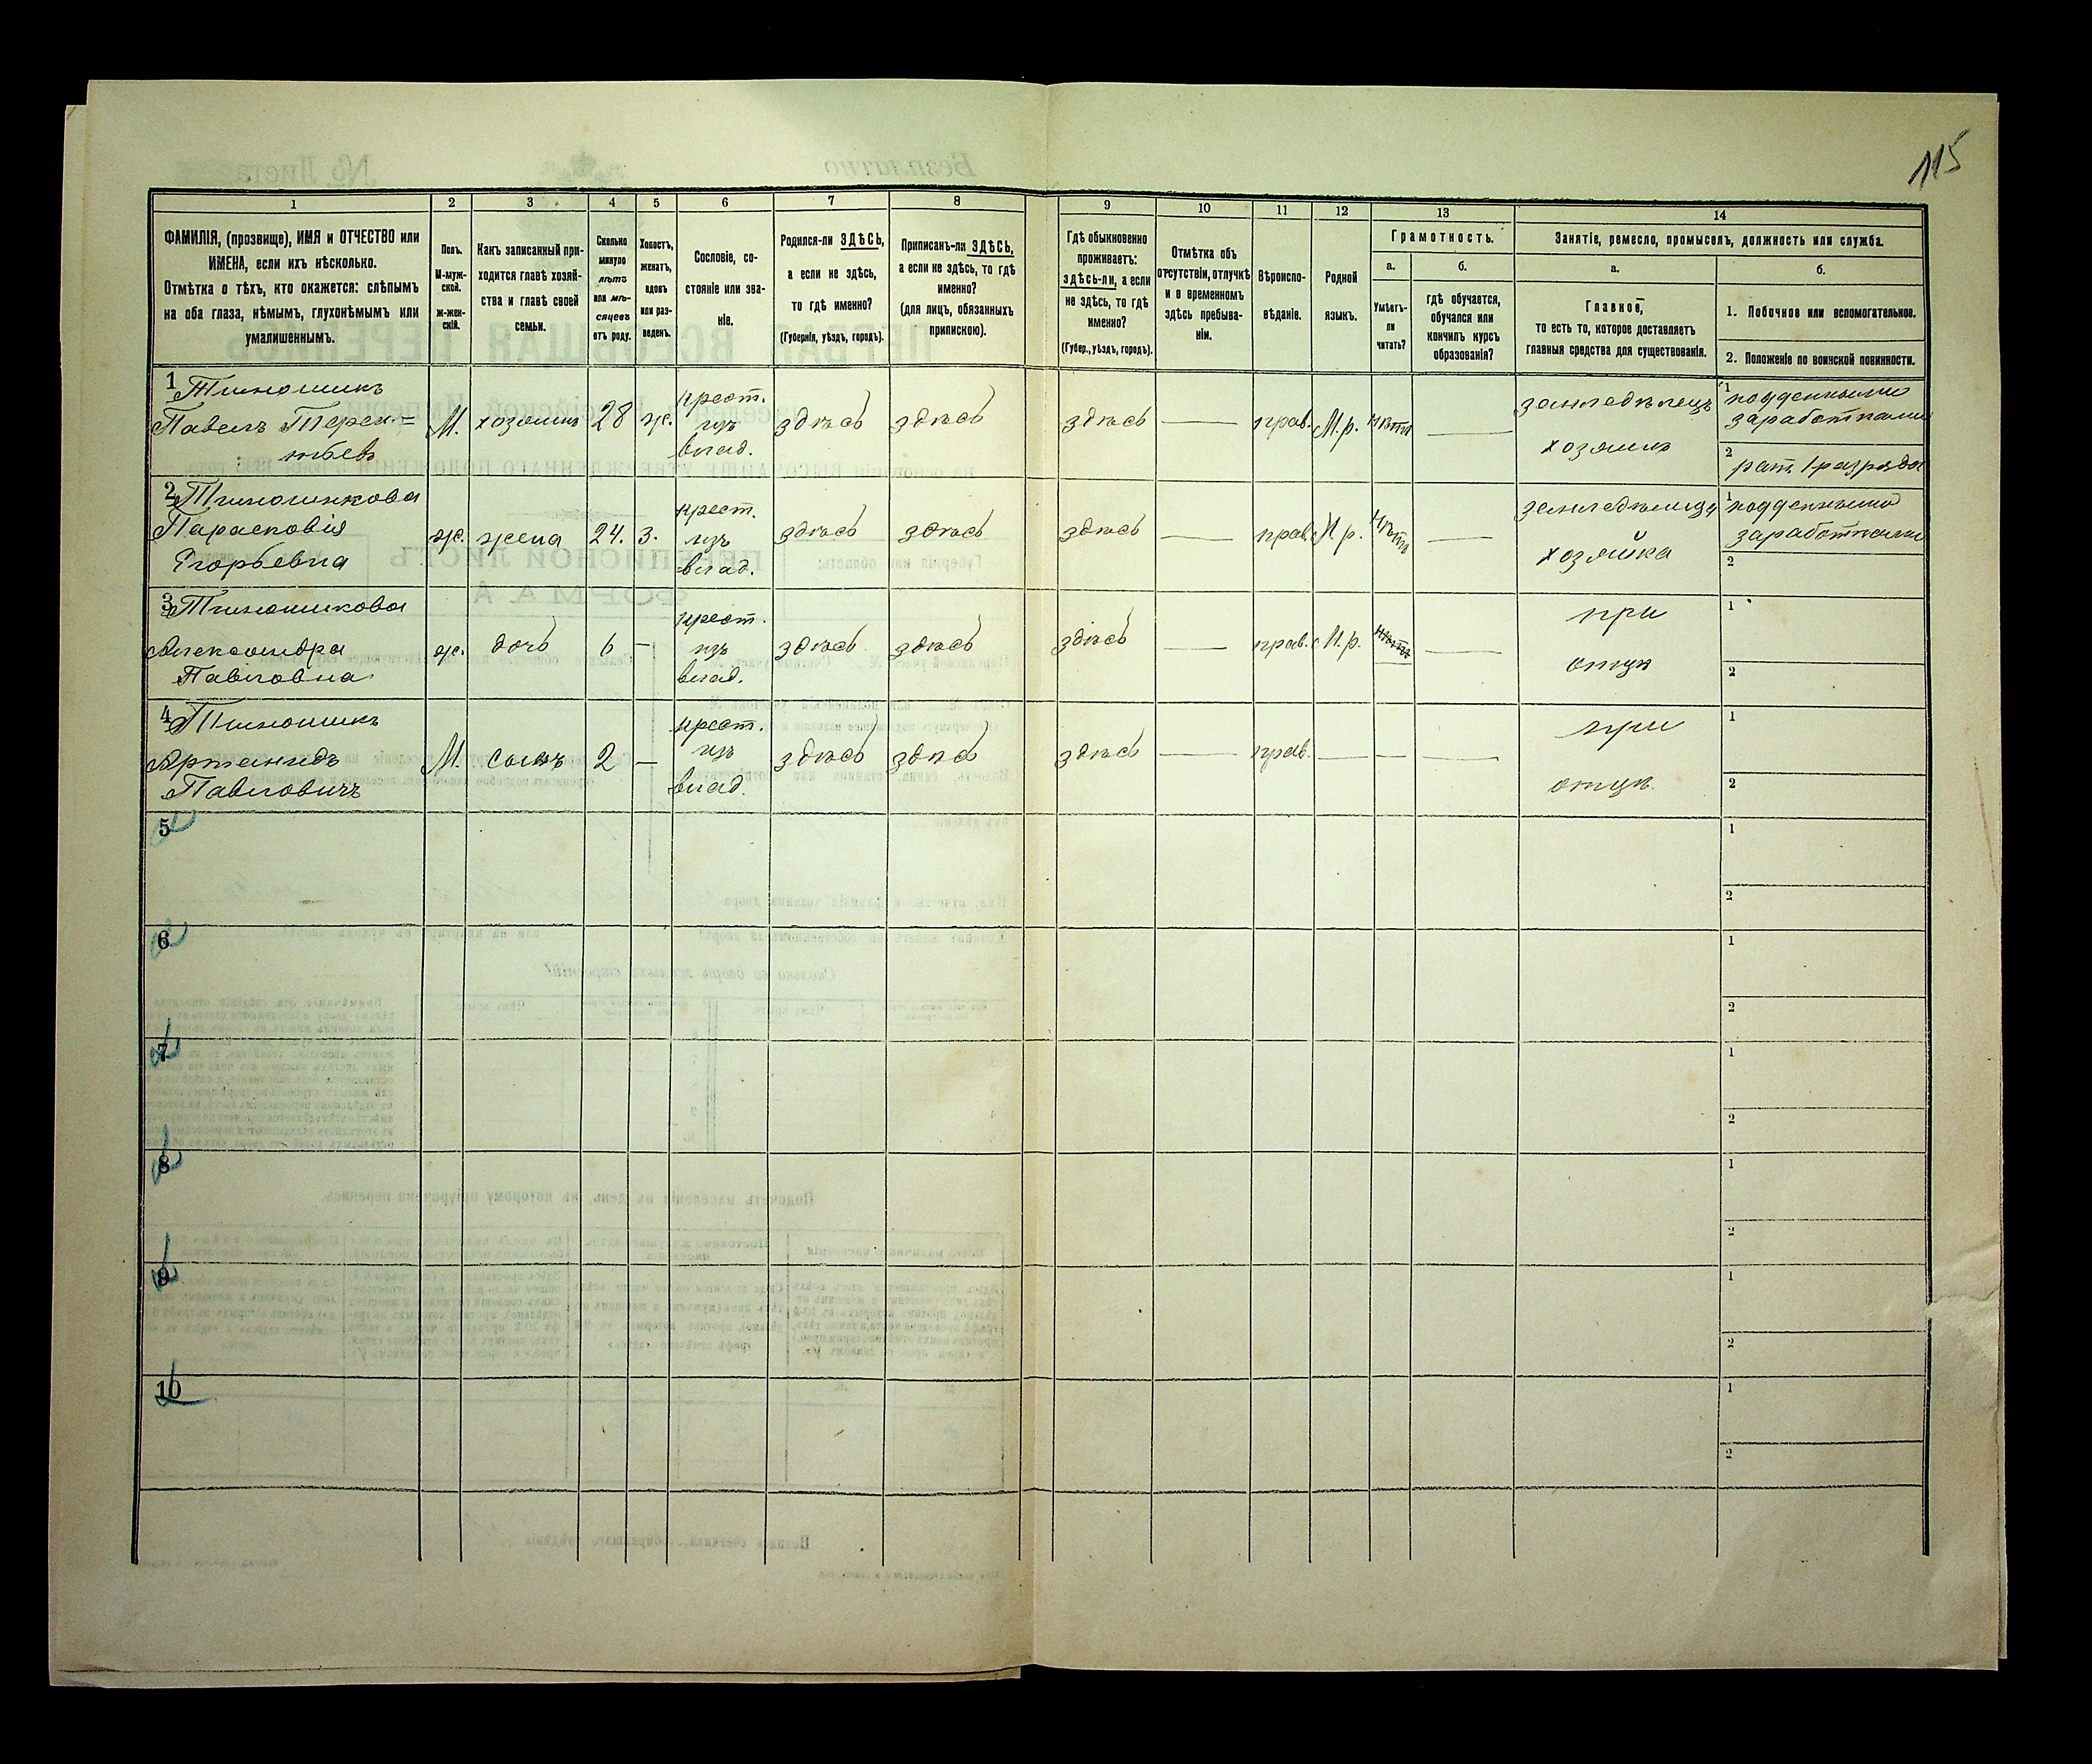 115
1
2
3
4
5
6
7
8
9
10
11
12
13
14
ФАМИЛІЯ, (прозвище), ИМЯ и ОТЧЕСТВО или
ИМЕНА, если ихъ нѣсколько.
Отмѣтка о тѣхъ, кто окажется: слѣпымъ
на оба глаза, нѣмымъ, глухонѣмымъ или
умалишеннымъ.
Полъ.
М-муж-
ской.
ж-жен-
скій.
Какъ записанный при-
ходится главѣ хозяй-
ства и главѣ своей
семьи.
Сколько
минуло
лѣтъ
или мѣ-
сяцевъ
отъ роду.
Холостъ,
женатъ,
вдовъ
или раз-
веденъ.
Сословіе, со-
стояніе или зва-
ніе.
Родился-ли ЗДѢСЬ,
а если не здѣсь,
то гдѣ именно?
(Губернія, уѣздъ, городъ).
Приписанъ-ли ЗДѢСЬ,
а если не здѣсь, то гдѣ
именно?
(для лицъ, обязанныхъ
припискою).
Гдѣ обыкновенно
проживаетъ:
здѣсь-ли, а если
не здѣсь, то гдѣ
именно?
(Губер., уѣздъ, городъ).
Отмѣтка объ
отсутствіи, отлучкѣ
и о временномъ
здѣсь пребыва-
ніи.
Вѣроиспо-
вѣданіе.
Родной
языкъ.
Грамотность.
а.
Умѣетъ-
ли
читать?
б.
гдѣ обучается,
обучался или
кончилъ курсъ
образованія?
Занятіе, ремесло, промыселъ, должность или служба.
а.
Главное,
то есть то, которое доставляетъ
главныя средства для существованія.
б.
1. Побочное или вспомогательное.
2. Положеніе по воинской повинности.
1
Павелъ Терен=
тьев
М.
хозяинъ
28
ж.
крест.
изъ
влад.
здѣсь
здѣсь
здѣсь
—
прав.
М.р.
нѣтъ
—
земледѣлецъ
хозяинъ
1 подденными
заработками
2 рат. 1 разряда
2
Парасковія
Егорьевна
ж.
жена
24.
з.
крест.
изъ
влад.
здѣсь
здѣсь
здѣсь
—
прав.
М.р.
нѣтъ
—
хозяйка
1 подденными
заработками
2
3
Александра
Павловна
ж.
дочь
6
—
крест.
изъ
влад.
здѣсь
здѣсь
здѣсь
—
прав.
М.р.
нѣтъ
—
при
отцѣ
1
2
4
Павловичъ
М.
сынъ
2
—
крест.
изъ
влад.
здѣсь
здѣсь
здѣсь
—
прав.
—
—
—
при
отцѣ.
1
2
5
1
2
6
1
2
7
1
2
8
1
2
9
1
2
10
1
2